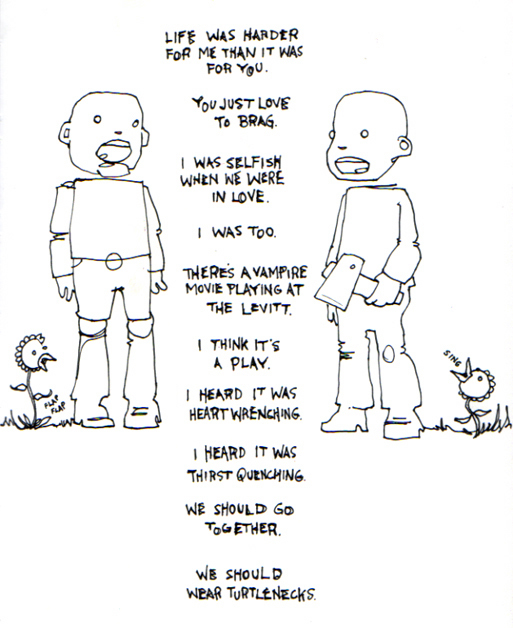 LIFE WAS HARDER
FOR ME THAN IT WAS
FOR YOU.
YOU JUST LOVE
TO BRAG.
I WAS SELFISH
WHEN WE WERE
IN LOVE.
I WAS TOO.
THERE'S A VAMPIRE
MOVIE PLAYING AT
THE LEVITT.
I THINK IT'S
A PLAY.
I HEARD IT WAS
HEART WRENCHING.
I HEARD IT WAS
THIRST QUENCHING.
WE SHOULD GO
TOGETHER.
WE SHOULD
WEAR TURTLENECKS.
FLAP
FLAP
SING